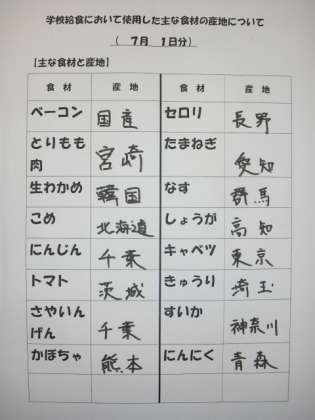 学校給食において使用した主な食材の産地について
( 7月 1日分)
【主な食材と産地】
食 材 産 地 食 材 産 地
ベーコン 国産 セロリ 長野
とりもも肉 宮崎 たまねぎ 愛知
生わかめ 韓国 なす 群馬
こめ 北海道 しょうが 高知
にんじん 千葉 キャベツ 東京
トマト 茨城 きゅうり 埼玉
さやいんげん 千葉 すいか 神奈川
かぼちゃ 熊本 にんにく 青森